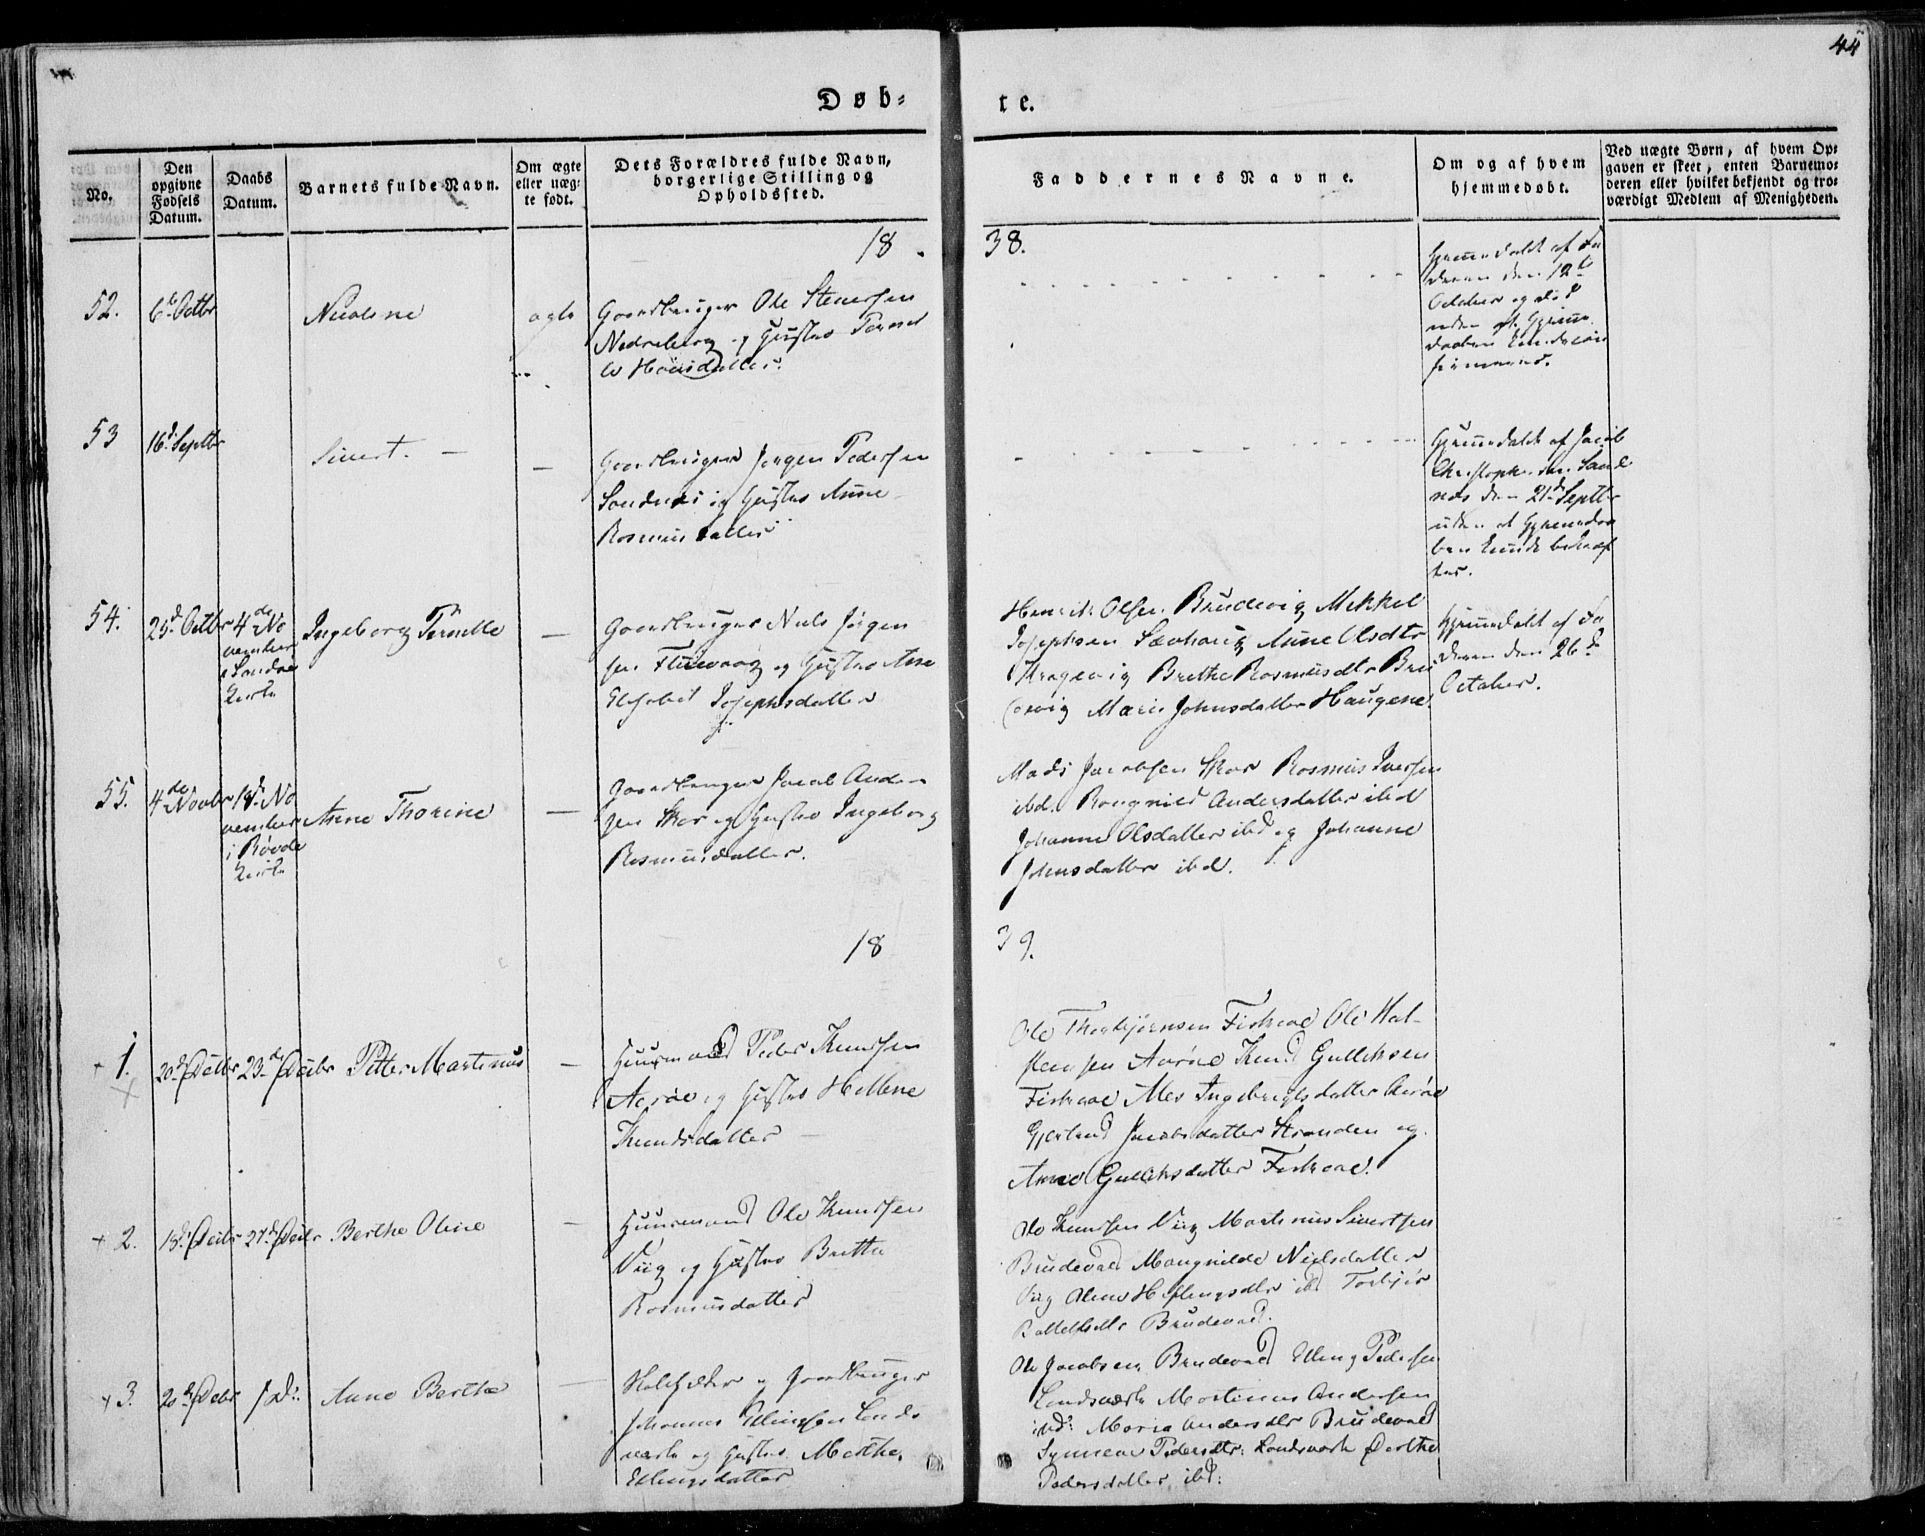 44
Døb-
te.
No.
Den
opgivne
Fødsels
Datum.
Daabs
Datum.
Barnets fulde Navn.
Om ægte
eller uæg-
te født.
Dets Forældres fulde Navn,
borgerlige Stilling og
Opholdssted.
Faddernes Navne.
Om og af hvem
hjemmedøbt.
Ved uægte Børn, af hvem Op-
gaven er skeet, enten Barnemo-
deren eller hvilket bekjendt og tro-
værdigt Medlem af Menigheden.
18
38.
52.
6te Octbr
Nicoline
ægte
Gaardbruger Ole Stenersen
Nedreberg og Hustro
Hjemmedøbt af Fa
deren den 12te
October og død
uden at Hjemme
daaben
53
16d Septbr
Sivert. —
—
Gaardbruger Jørgen Pedersen
Sandnes og Hustro Anne
Rasmusdatter
Hjemmedøbt af Jacob
Christophersen Sand
næs den 21de Septbr
uden at Hjemmedaa
ben kunde bekræf
tes.
54.
25d Octbr
4de No
vember
i Sandnes
Kirke
Ingeborg Pernille
—
Gaardbruger Niels Jørgen
sen Fluevaag og Hustro Ane
Elisabet Josephsdatter
Henrik Olsen Brudevig Mikkel
Josephsen Anne Olsdtr
Kragevig Brethe Rasmusdtr Bru
devig Marie Johnsdatter Haugene
Hjemmedøbt af Fa
deren den 26d
October.
55.
4de Novbr
18d No
vember
i Røvde
Kirke
Anne Thorine
—
Gaardbruger Jacob Ander
sen Skar og Hustro Ingeborg
Rasmusdatter.
Mads Jacobsen Skar Rasmus Iversen
ibd. Raagnild Andersdatter ibd
Johanne Olsdatter ibd og Johanne
Johnsdatter ibd.
18
39.
+ 1.
20d Decbr
23de Decbr
Petter Martinus
—
Huusmand Peder Knudsen
Aarøe og Hustro Hellene
Knudsdatter —
Ole Thorbjørnsen Fiskaae Ole Hal-
stensen Aarøe Knud Gullichsen
Fiskaae Ales Ingebrigtsdatter Aarøe
Gjertrud Jacobsdatter Stranden og
Anne Gullichsdatter Fiskaae.
+ 2.
18d Decbr
27d Decbr
Berthe Oline
—
Huusmand Ole Knudsen
Viig og Hustro Brethe
Rasmusdatter
Ole Knudsen Viig Martinus Sivertsen
Brudevad Maugnilde Nielsdatter
Viig Oline ibd Torbjør
Brudevad.
+ 3.
20d Decbr
s. D.
Anne Berthe
—
og Gaardbruger
Johannes Ellingsen Lands
værk og Hustro Marthe
Ellingsdatter
Ole Jacobsen Brudevad Elling Pedersen
Landsværk Martinus Andersen
ibd: Maria Andersdtr Brudevad
Synneve Pedersdtr: Landsværk Berthe
Pedersdatter ibd: